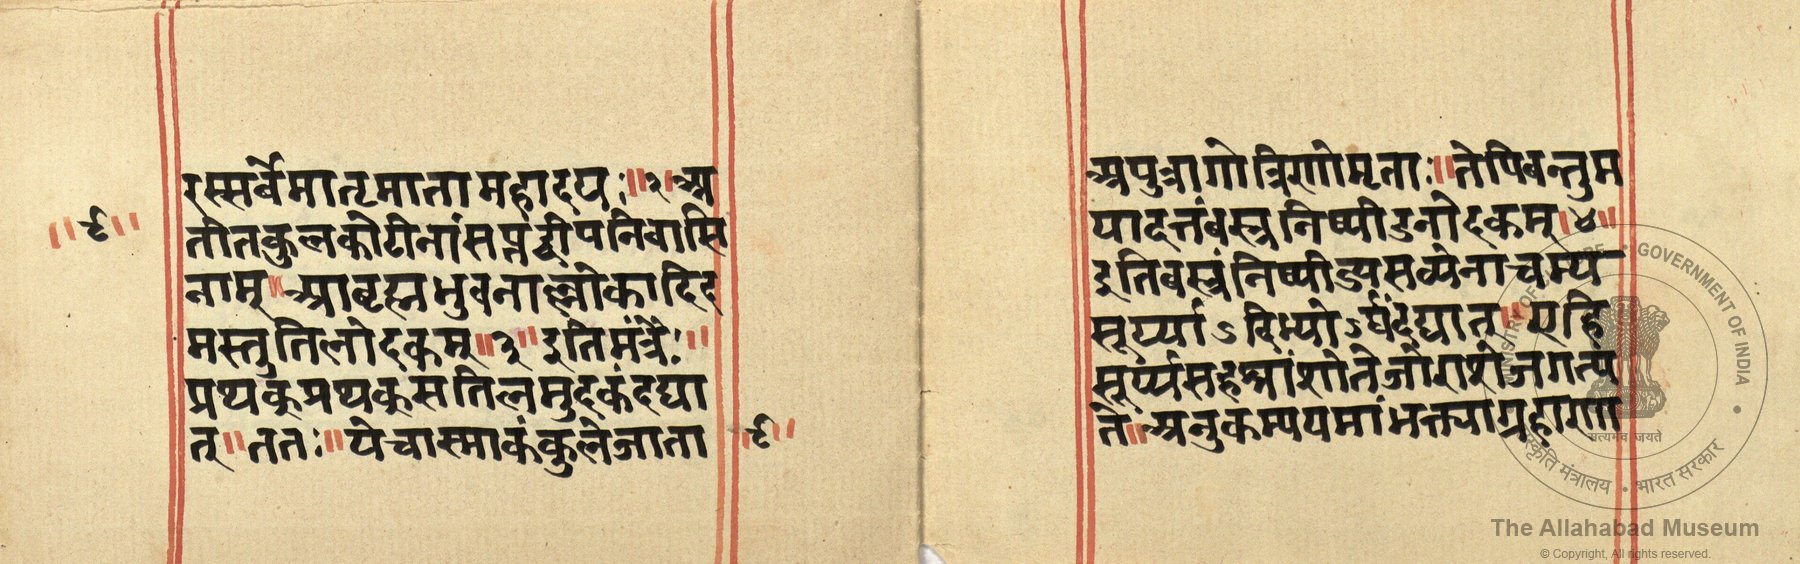 रस्सर्वेमातृमातामहादयः॥२॥अ
तीतकुलकोटीनांसप्तद्वीपनिवासि
नाम्॥आब्रह्मभुवनाल्लोकादिद
मस्तुतिलोदकम्॥३॥इतिमंत्रैः॥
प्रथक्प्रथक्सतिलमुदकंदद्या
त्॥ततः॥येचास्माकंकुलेजाता
॥९॥
॥९॥
अपुत्रागोत्रिणोमृताः॥तेपिबन्तुम
यादत्तंवस्त्रनिष्पीडनोदकम्॥४॥
इतिवस्त्रंनिष्पीड्यसव्येनाचम्य
सूर्य्याऽदिभ्योऽर्घंदद्यात्॥एहि
सूर्य्यसहस्रांशोतेजोराशेजगत्प
ते॥अनुकम्पयमांभक्त्याग्रहाण
MINISTRY OF CULTURE • GOVERNMENT OF INDIA
सत्यमेव जयते
संस्कृति मंत्रालय • भारत सरकार
The Allahabad Museum
© Copyright, All rights reserved.